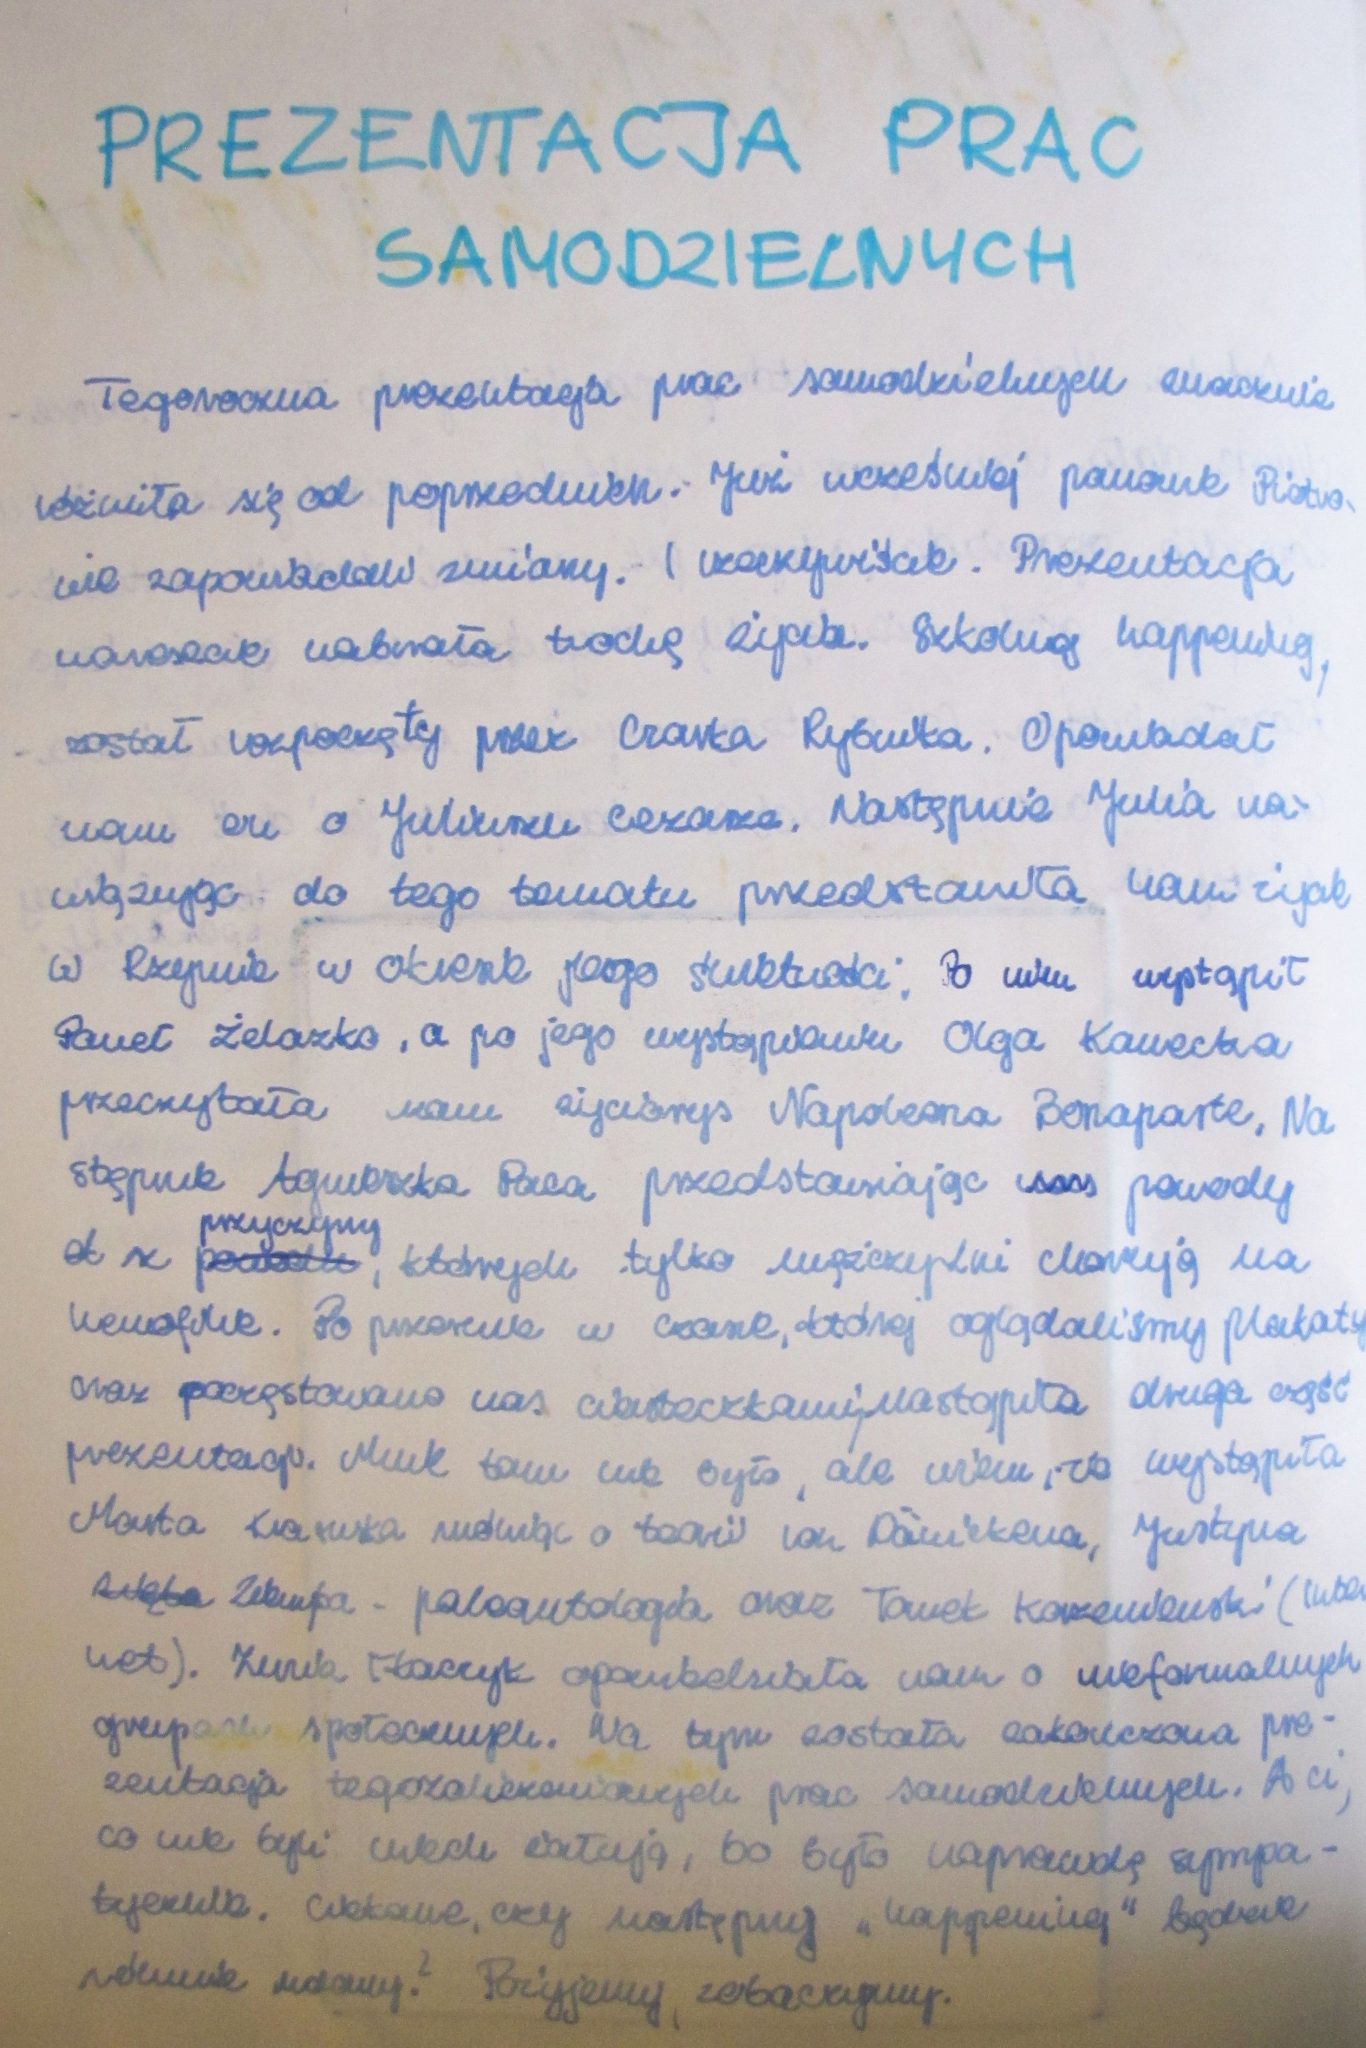 PREZENTACJA PRAC
SAMODZIELNYCH
Tegoroczna prezentacja prac samodzielnych znacznie
różniła się od poprzednich. Już wcześniej panowie Piotro-
wie zapowiadali zmiany. I rzeczywiście. Prezentacja
nareszcie nabrała trochę życia. Szkolny happening,
został rozpoczęty przez Czarka Rybnika. Opowiadał
nam on o Juliuszu Cezarze. Następnie Julia na-
wiązując do tego tematu przedstawiła nam życie
w Rzymie w okresie jego świetności. Po nim wystąpił
Paweł Żelazko, a po jego wystąpieniu Olga Kawecka
przeczytała nam życiorys Napoleona Bonaparte. Na
stępnie Agnieszka Paca przedstawiając nas powody
z przyczyny, których tylko mężczyźni chorują na
hemofilie. Po przerwie w czasie, której oglądaliśmy plakaty
oraz poczęstowano nas ciasteczkami, nastąpiła druga część
prezentacji. Mnie tam nie było, ale wiem, że wystąpiła
Marta mówiąc o teorii von Dänikena, Justyna
- paleontologia oraz Tomek Korzeniewski (inter
net). Tkaczyk opowiedziała nam o nieformalnych
grupach społecznych. Na tym została zakończona pre-
zentacja prac samodzielnych. A ci,
co nie byli niech żałują, bo było naprawdę sympa-
tycznie. Ciekawe, czy następny „happening" będzie
równie udany? Pożyjemy, zobaczymy.